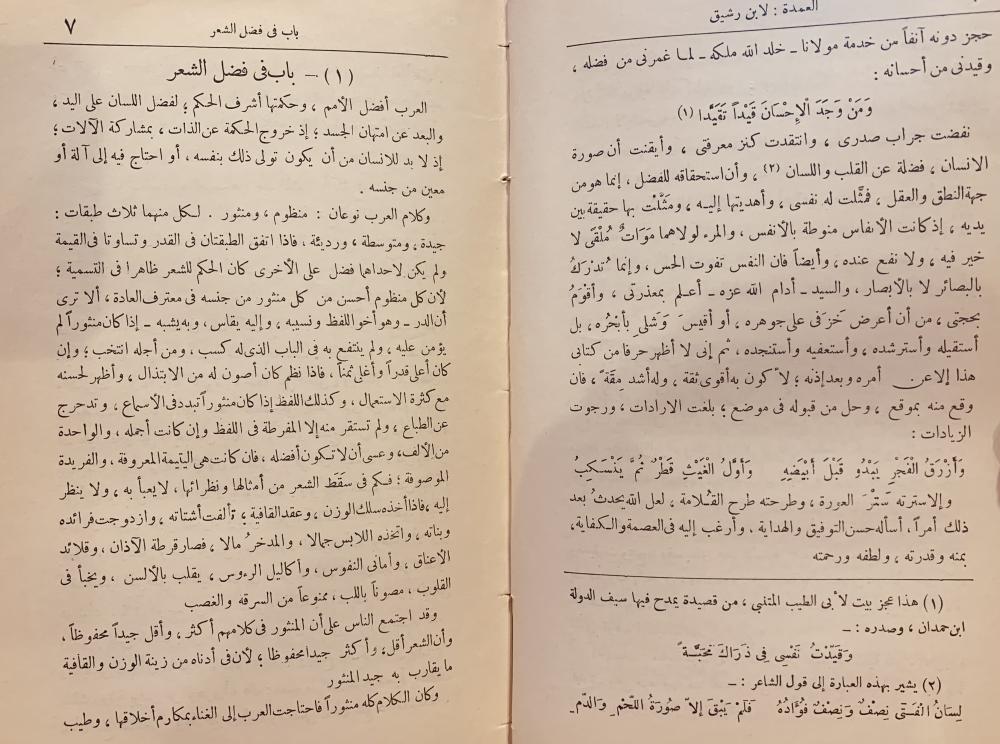 العمدة : لابن رشيق
حجز دونه آنفاً من خدمة مولانا ـ خلد الله ملكه ـ لما غمرنى من فضله ،
وقيدنى من أحسانه :
وَمَنْ وَجَدَ الْإِحْسَانَ قَيْداً تَقَيَّدا (١)
نفضت جراب صدرى ، وانتقدت كنز معرفتى ، وأيقنت أن صورة
الانسان ، فضلة عن القلب واللسان (٢) ، وأن استحقاقه للفضل ، إنما هو من
جهة النطق والعقل ، فمثَّلت له نفسى ، وأهديتها إليه ، ومَثَّلْت بها حقيقة بين
يديه ، إذ كانت الأنفاس منوطة بالأنفس ، والمرء لولاهما مَوَاتٌ مُلْقًى لا
خير فيه ، ولا نفع عنده ، وأيضاً فان النفس تفوت الحس ، وإنما تُدْرَكُ
بالبصائر لا بالأبصار ، والسيد ـ أدام الله عزه ـ أعلم بمعذرتى ، وأقوَمُ
بحجتى ، من أن أعرض خَزَفى على جوهره ، أو أقيسَ وَشَلى بأبْحُره ، بل
أستقيله وأسترشده ، وأستعفيه وأستنجده ، ثم إنى لا أظهر حرفا من كتابى
هذا إلا عن أمره وبعد إذنه ؛ لأكون به أقوى ثقة ، وله أشد مِقَة ، فان
وقع منه بموقع ، وحل من قبوله فى موضع ؛ بلغت الارادات ، ورجوت
الزيادات :
وَأَزْرَقُ الْفَجْرِ يَبْدُو قَبْلَ أَبْيَضِهِ وَأَوَّلُ الْغَيْثِ قَطْرٌ ثُمَّ يَنْسَكِبُ
وإلا سترته سَتْرَ العورة ، وطرحته طرح القُلامة ، لعل الله يحدثُ بعد
ذلك أمراً ، أسأله حسن التوفيق والهداية ، وأرغب إليه فى العصمة والكفاية ،
بمنه وقدرته ، ولطفه ورحمته
(١) هذا عجز بيت لأبى الطيب المتنبى ، من قصيدة يمدح فيها سيف الدولة
ابن حمدان ، وصدره : ـ
وَقَيَّدْتُ نَفْسِى فِى ذَرَاكَ مَحَبَّةً
(٢) يشير بهذه العبارة إلى قول الشاعر : ـ
لِسَانُ الْفَتَى نِصْفٌ وَنِصْفٌ فُؤَادُهُ فَلَمْ يَبْقَ إِلاَّ صُورَةُ اللَّحْمِ وَالدَّمِ
باب فى فضل الشعر ٧
(١) ـ باب فى فضل الشعر
العرب أفضل الأمم ، وحكمتها أشرف الحكم ؛ لفضل اللسان على اليد ،
والبعد عن امتهان الجسد ؛ إذ خروج الحكمة عن الذات ، بمشاركة الآلات ؛
إذ لا بد للانسان من أن يكون تولى ذلك بنفسه ، أو احتاج فيه إلى آلة أو
معين من جنسه .
وكلام العرب نوعان : منظوم ، ومنثور . لكل منهما ثلاث طبقات :
جيدة ، ومتوسطة ، ورديئة ، فاذا اتفق الطبقتان فى القدر وتساوتا فى القيمة
ولم يكن لاحداهما فضل على الأخرى كان الحكم للشعر ظاهرا فى التسمية ؛
لأن كل منظوم أحسن من كل منثور من جنسه فى معترف العادة ، ألا ترى
أن الدر ـ وهو أخو اللفظ ونسيبه ، وإليه يقاس ، وبه يشبه ـ إذا كان منثوراً لم
يؤمن عليه ، ولم ينتفع به فى الباب الذى له كسب ، ومن أجله انتخب ؛ وإن
كان أعلى قدراً وأغلى ثمناً ، فاذا نظم كان أصون له من الابتذال ، وأظهر لحسنه
مع كثرة الاستعمال ، وكذلك اللفظ إذا كان منثوراً تبدد فى الأسماع ، وتدحرج
عن الطباع ، ولم تستقر منه إلا المفرطة فى اللفظ وإن كانت أجمله ، والواحدة
من الألف، وعسى أن لا تكون أفضله ، فان كانت هى اليتيمة المعروفة ، والفريدة
الموصوفة ؛ فكم فى سَقَط الشعر من أمثالها ونظرائها ، لا يعبأ به ، ولا ينظر
إليه ، فاذا أخذه سلك الوزن ، وعقد القافية ؛ تألفت أشتاته ، وازدوجت فرائده
وبناته ، واتخذه اللابس جمالا ، والمدخر مالا ، فصار قرطة الآذان ، وقلائد
الأعناق ، وأمانى النفوس ، وأكاليل الرءوس ، يقلب بالألسن ، ويخبأ فى
القلوب ، مصوناً باللب ، ممنوعاً من السرقه والغصب
وقد اجتمع الناس على أن المنثور فى كلامهم أكثر ، وأقل جيداً محفوظاً ،
وأن الشعر أقل ، وأكثر جيدا محفوظا ؛ لأن فى أدناه من زينة الوزن والقافية
ما يقارب به جيد المنثور
وكان الكلام كله منثوراً فاحتاجت العرب إلى الغناء بمكارم أخلاقها ، وطيب